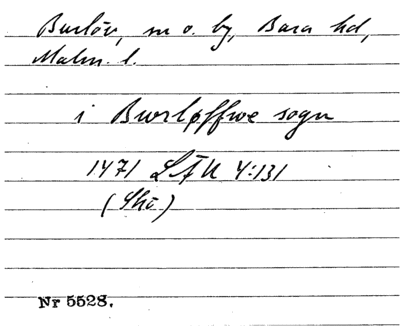 Burlöv, sn o. by, Bara hd,
Malm. l.
i Bwrløffwe sogn
1471 LÄU 4:131
(Skå)
Nr 5528.